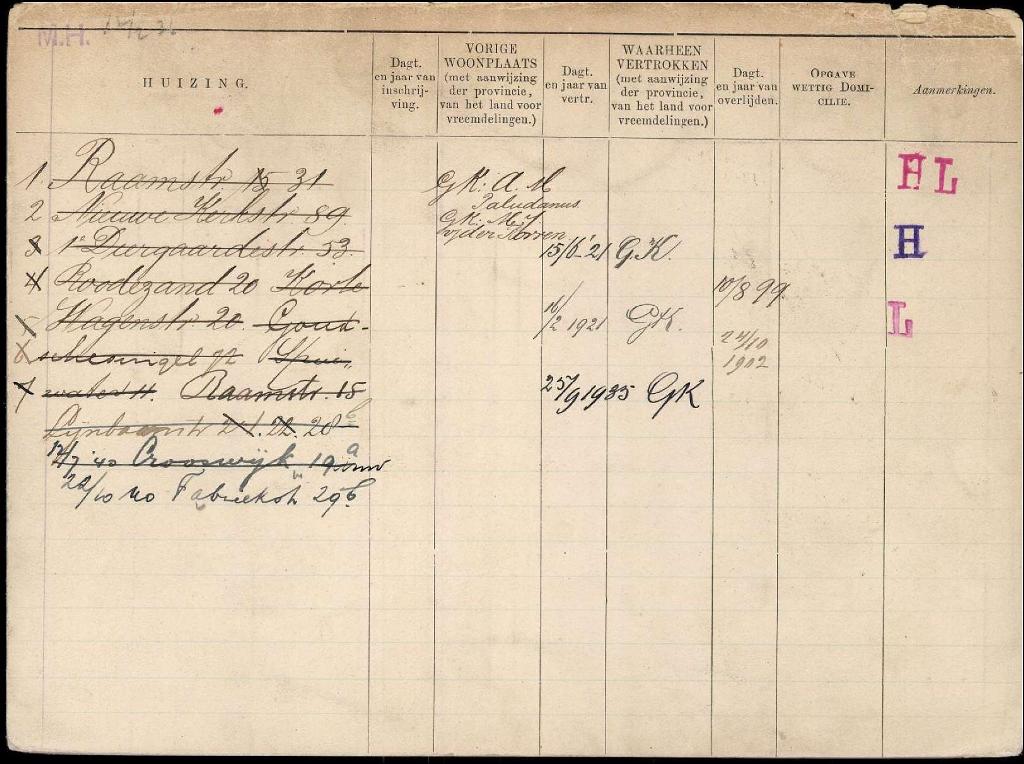 M.H.
HUIZING.
Dagt.
en jaar van
inschrij-
ving.
VORIGE
WOONPLAATS
(met aanwijzing
der provincie,
van het land voor
vreemdelingen.)
Dagt.
en jaar van
vertr.
WAARHEEN
VERTROKKEN
(met aanwijzing
der provincie,
van het land voor
vreemdelingen.)
Dagt.
en jaar van
overlijden.
OPGAVE
WETTIG DOMI-
CILIE.
Aanmerkingen.
1 Raamstr. 15 31
GK: A. M
Paludanus
HL
2 Nieuwe Kerkstr 89
GK: M. J
v/der Korren
3 1e Diergaardestr. 53.
15/6-'21 G.K.
H
4 Roodezand 20 Korte
10/8 99
5 Wagenstr 20. Goud-
16/2 1921 GK.
L
6 schesingel 92 Spui-
24/10
1902
7 water 11. Raamstr. 15
25/9 1935 GK
Lijnbaanstr 21. 22. 28b
12/7 '40 Crooswijk 19a
22/10 40 Fabriekstr 29b